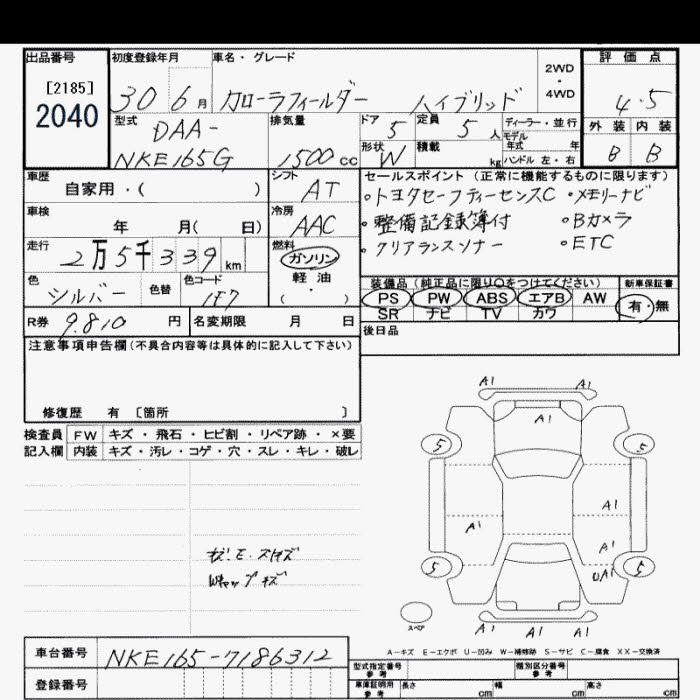 出品番号 初度登録年月 車名・グレード 2WD・4WD 評価点
[2185]
2040
30 6月 カローラフィールダー ハイブリッド 4.5
型式 排気量 ドア 定員 ディーラー・並行 外装 内装
DAA-
NKE165G 1500cc 5 5人 モデル年式 年 B B
形状 W 積載 kg ハンドル 左・右
車歴 シフト セールスポイント(正常に機能するものに限ります)
自家用・( ) AT ・トヨタセーフティーセンスC ・メモリーナビ
車検 冷房 ・整備記録簿付 ・Bカメラ
年 月( 日) AAC ・クリアランスソナー ・ETC
走行 燃料
2万5千339km ガソリン
軽油
・( )
色 色替 色コード 装備品(純正品に限り〇をつけてください) 新車保証書
シルバー 1F7 PS PW ABS エアB AW 有・無
SR ナビ TV カワ
R券 9.810円 名変期限 月 日 後日品
注意事項申告欄(不具合内容等は具体的に記入して下さい)
修復歴 有 〔箇所 〕
検査員 FW キズ・飛石・ヒビ割・リペア跡・×要
記入欄 内装 キズ・汚レ・コゲ・穴・スレ・キレ・破レ
A1 A1
A1
5 5
A1
A1
A1
5 UA1 5
スペア
A1 A1 A1
A-キズ E-エクボ U-凹み W-補修跡 S-サビ C-腐食 XX-交換済
車台番号 NKE165-7186312 型式指定番号 参考 類別区分番号 参考
登録番号 車庫証明用 参考 長さ cm 幅 cm 高さ cm